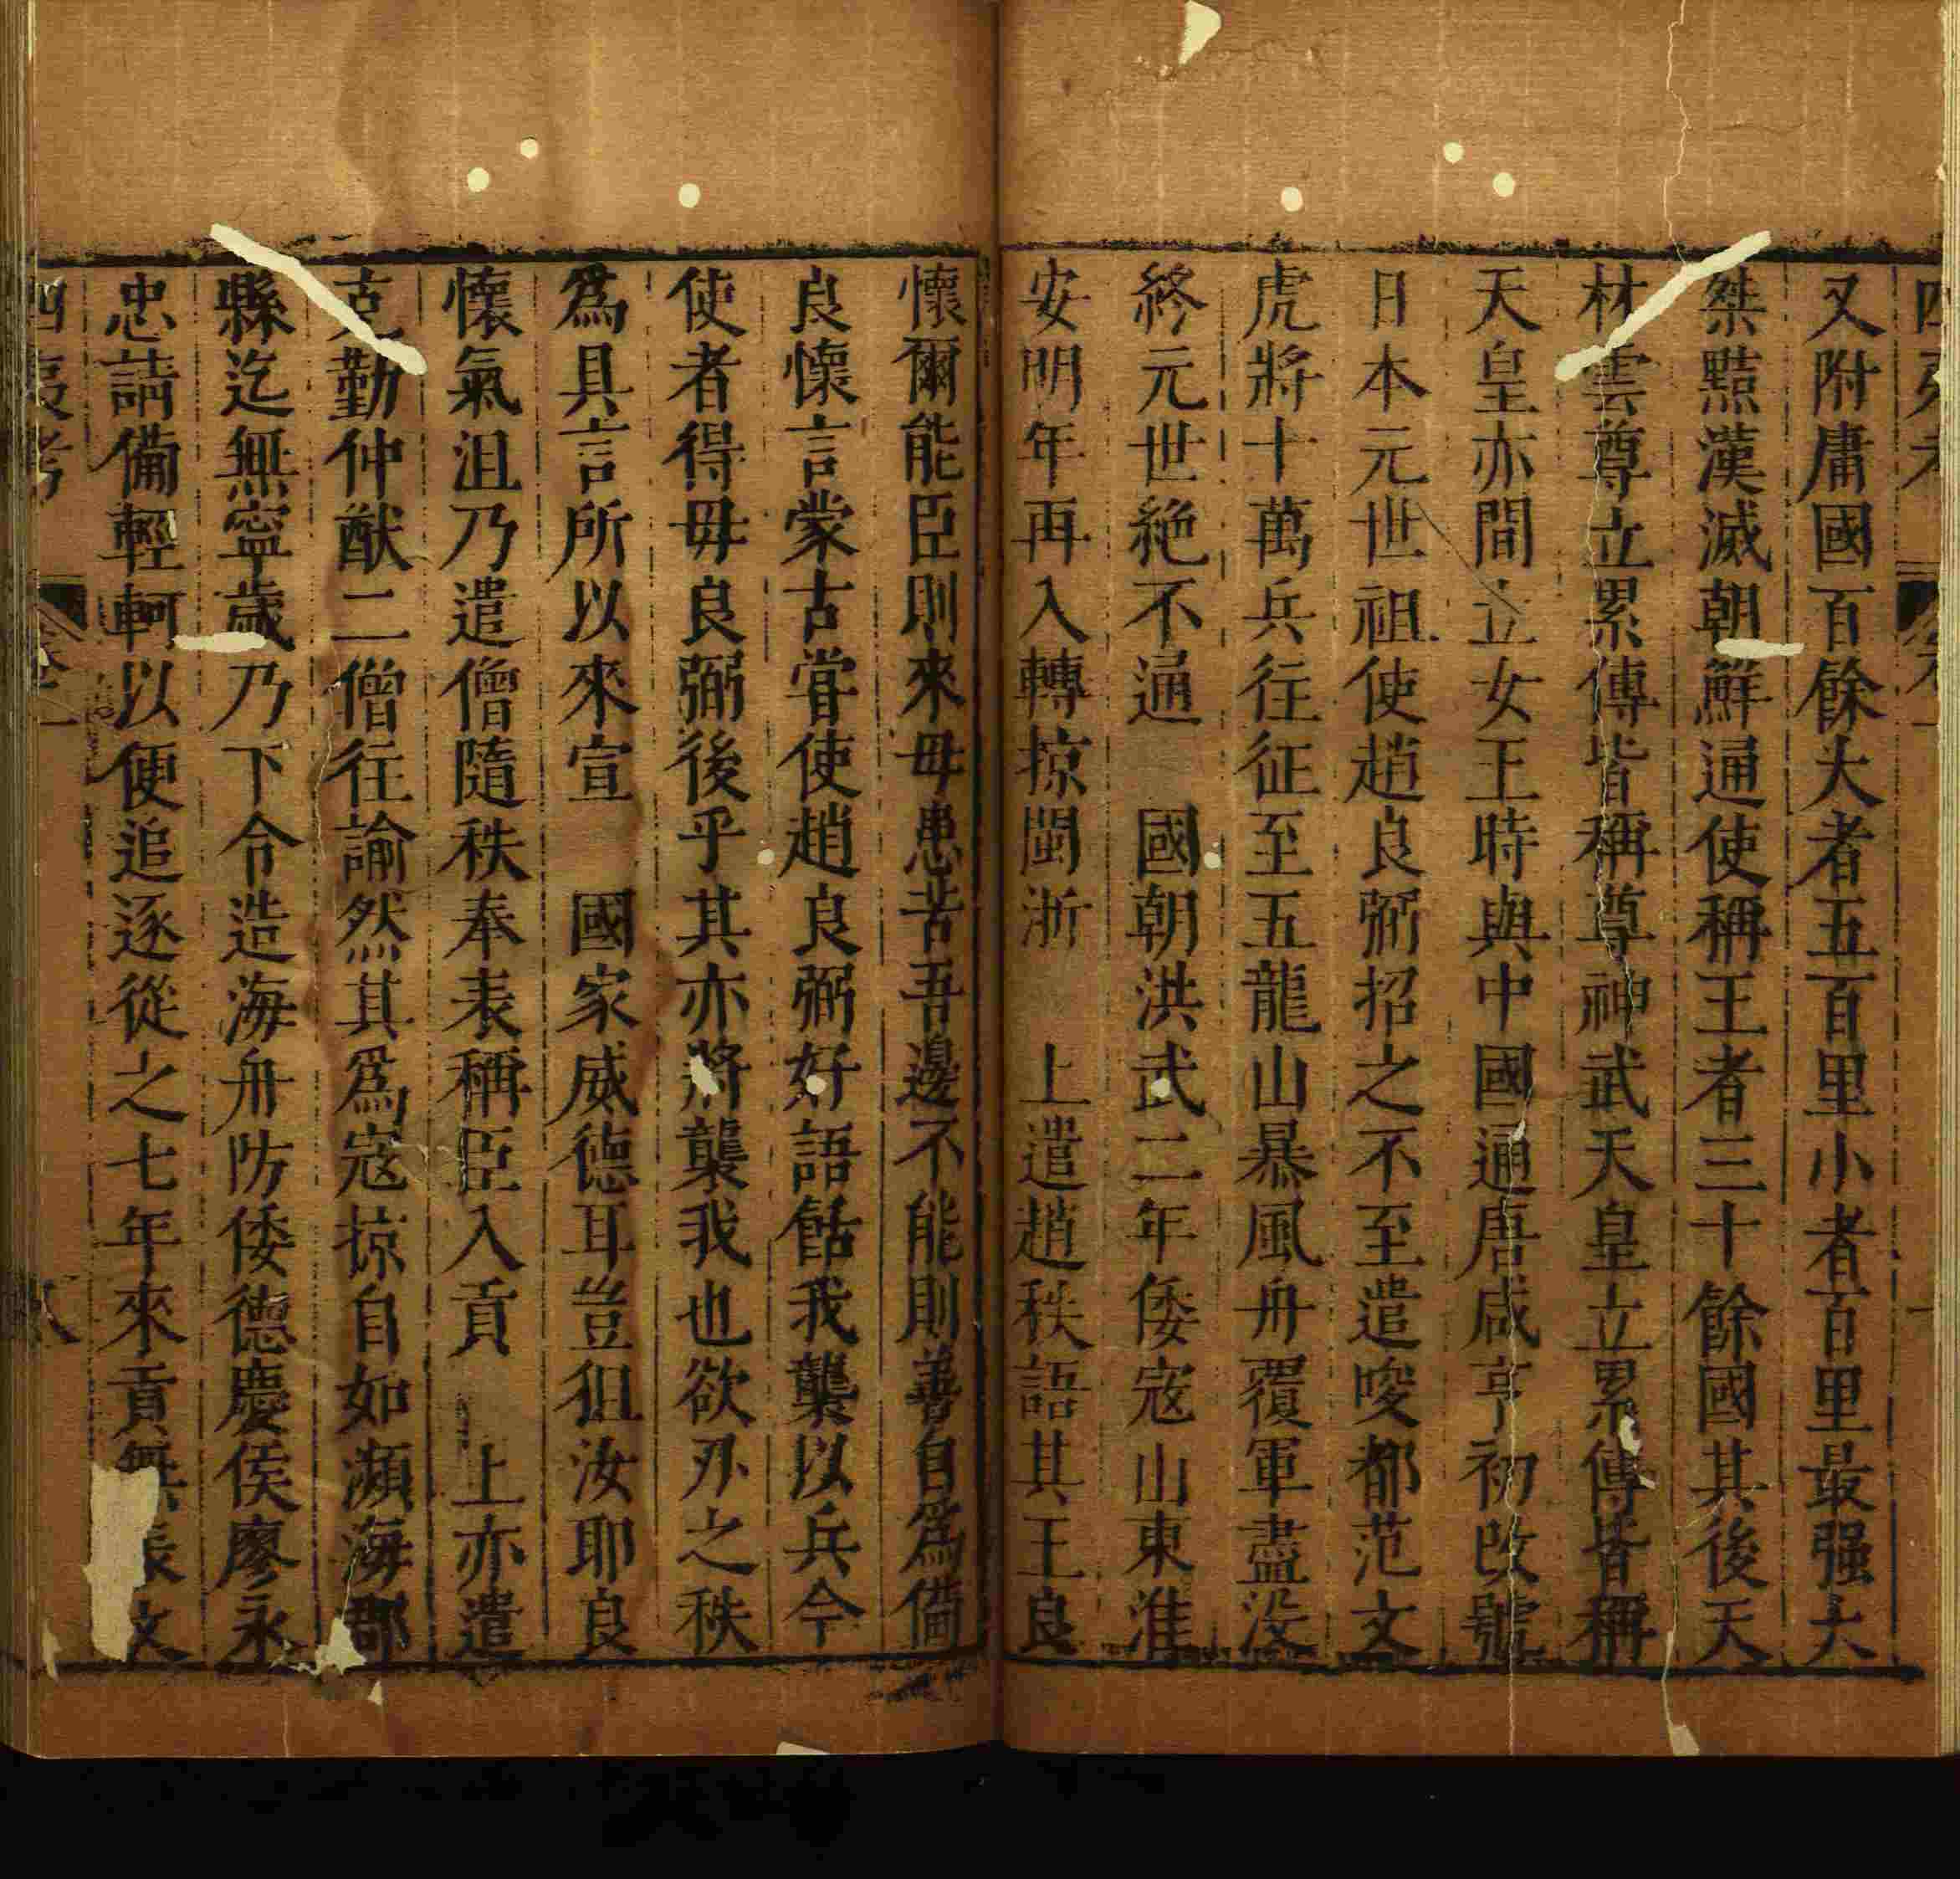 又附庸國百餘大者五百里小者百里最强大
桀黠漢滅朝鮮通使稱王者三十餘國其後天
材雲尊立累傳皆稱尊神武天皇立累傳皆稱
天皇亦間立女王時與中國通唐咸亨初改號
日本元世祖使趙良弼招之不至遣唆都范文
虎將十萬兵往征至五龍山暴風舟覆軍盡沒
終元世絶不通 國朝洪武二年倭寇山東淮
安明年再入轉掠閩浙 上遣趙秩語其王良
懷爾能臣則來毋患苦吾邊不能則善自爲備
良懷言蒙古嘗使趙良弼好語餂我襲以兵今
使者得毋良弼後乎其亦將襲我也欲刃之秩
爲具言所以來宣 國家威德耳豈狙汝耶良
懷氣沮乃遣僧隨秩奉表稱臣入貢 上亦遣
克勤仲猷二僧往諭然其爲寇掠自如瀕海郡
縣迄無寧歲乃下令造海舟防倭德慶侯廖永
忠請備輕舸以便追逐從之七年來貢無表文
四夷考